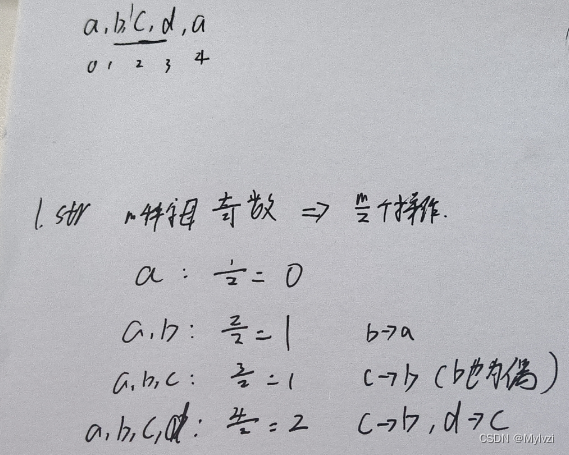 a,b,c,d,a
0 1 2 3 4
1. str m种字母 奇数 => m/2个操作.
a : 1/2 = 0
a,b : 2/2 = 1 b→a
a,b,c : 3/2 = 1 c→b (b也为偶)
a,b,c,d : 4/2 = 2 c→b, d→c
CSDN @Mylvzi